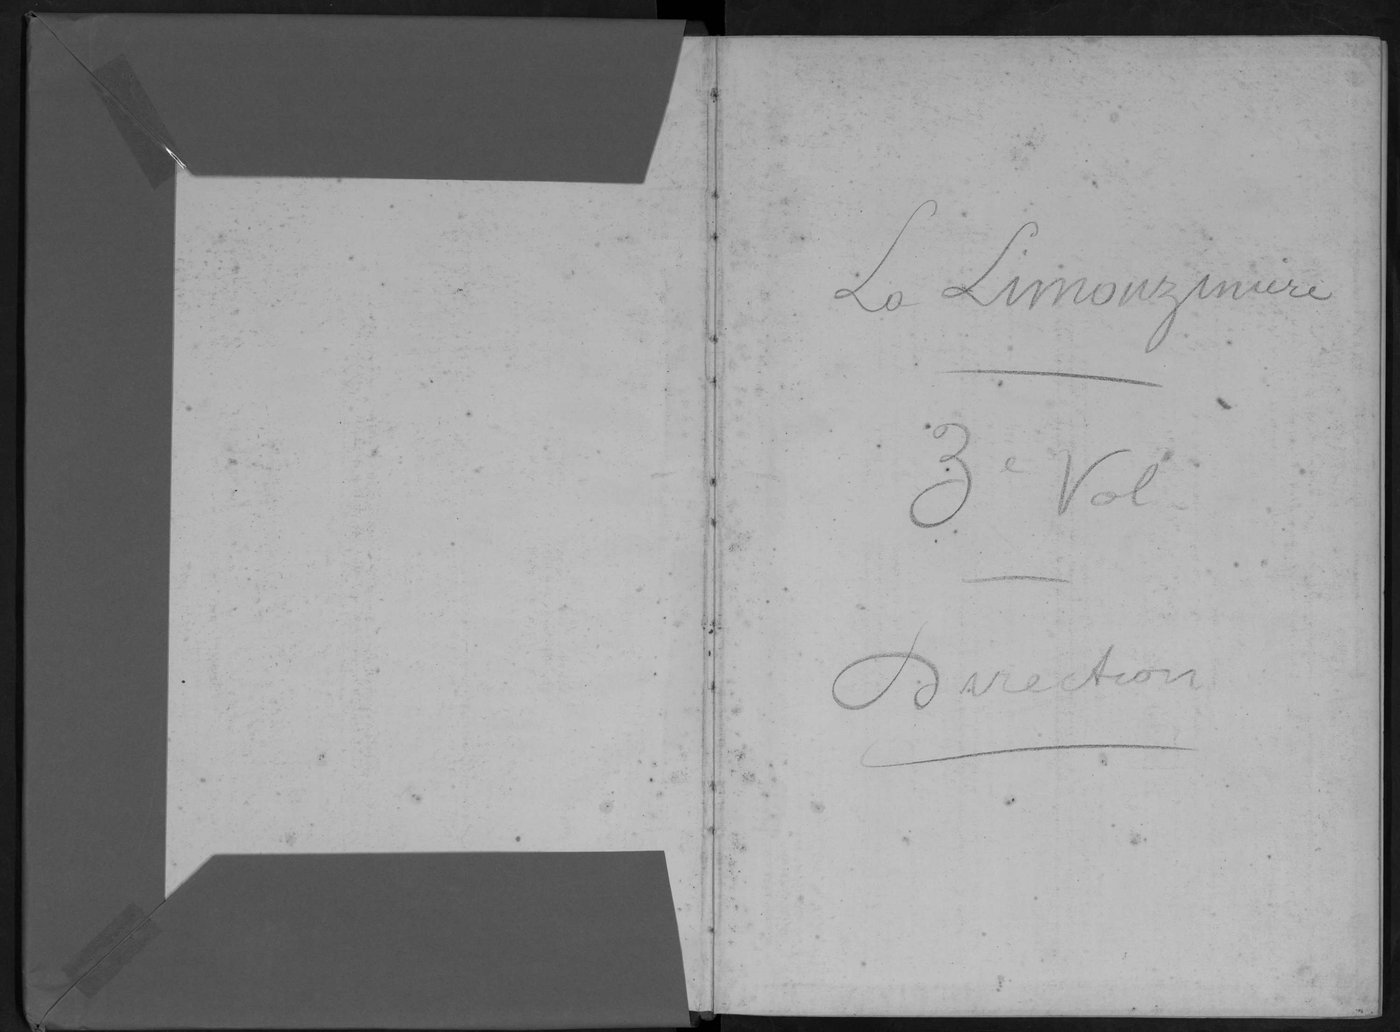 La Limouzinière
3e Vol
Direction